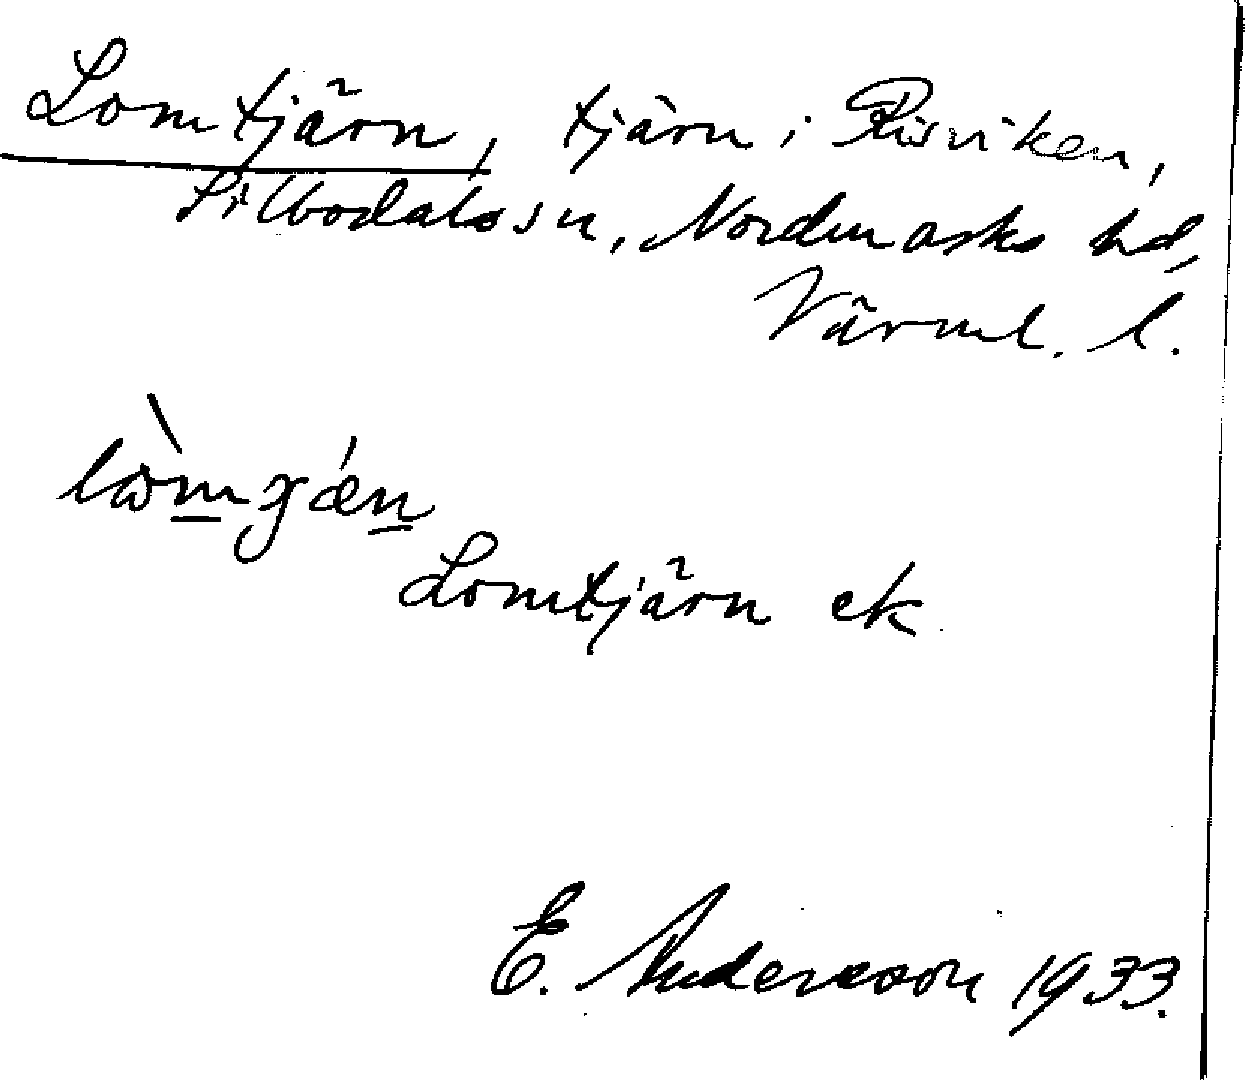 Lomtjärn, tjärn i Risviken,
Silbodals sn, Nordmarks hd,
Värml. l.
Lomtjärn ek
E. Andersson 1933.